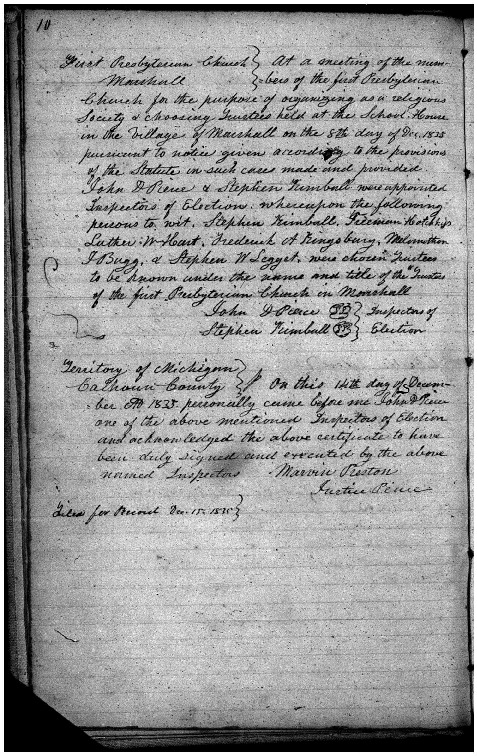 10
First Presbyterian Church } At a meeting of the mem-
Marshall } =bers of the first Presbyterian
Church for the purpose of organizing as a religious
Society & choosing Trustees held at the School House
in the Village of Marshall on the 8th day of Dec. 1835
pursuant to notice given according to the provisions
of the Statute in such cases made and provided.
John D Pierce & Stephen Kimball were appointed
Inspectors of Election. whereupon the following
persons to, wit, Stephen Kimball, Hotchkiss
Luther. W. Hart, Frederick A Kingsbury,
J Bugg, & Stephen W Legget, were chosen Trustees
to be known under the name and title of the Trustees
of the first Presbyterian Church in Marshall
John D Pierce } Inspectors of
Stephen Kimball } Election
Territory of Michigan }
Calhoun County } ss On this 14th day of Decem-
=ber AD 1835. personally came before me John D Pierce
one of the above mentioned Inspectors of Election
and acknowledged the above certificate to have
been duly signed and executed by the above
named Inspectors Marvin Preston
Justice Peace
Filed for Record Dec. 15. 1835 }